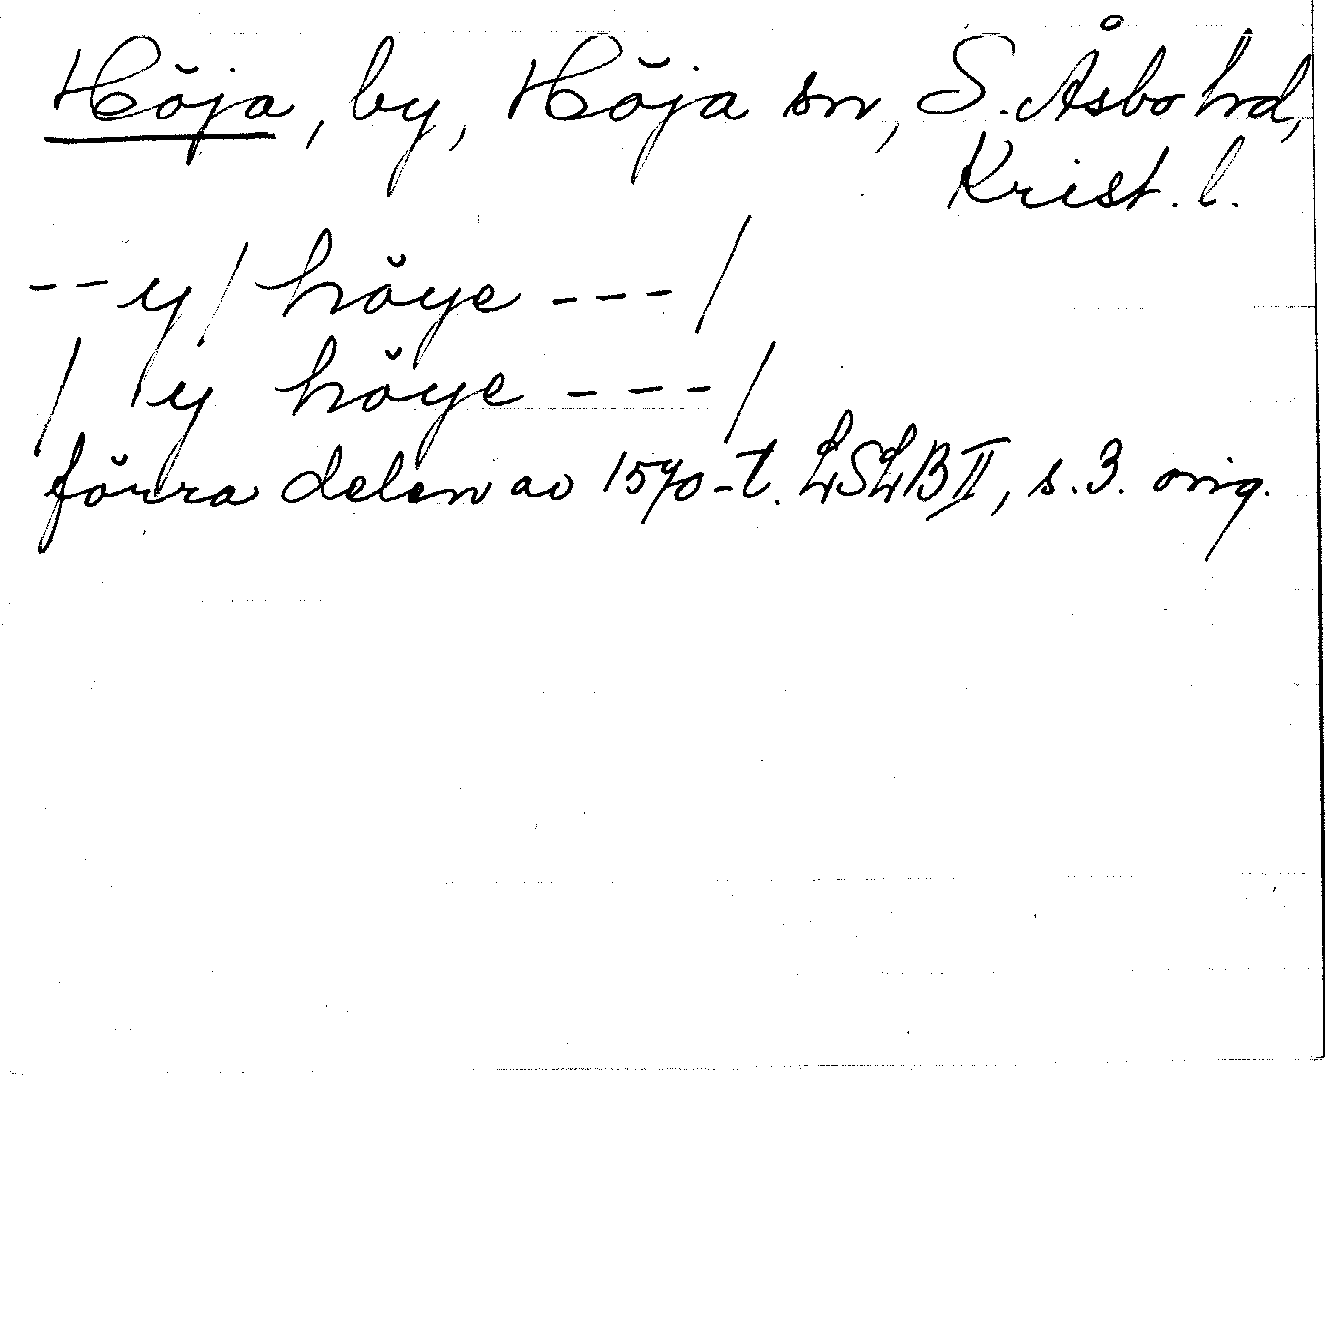 Höja, by, Höja sn, S. Åsbo hd,
Krist. l.
--y/ höye ---/
/ y höye ---/
förra delen av 1570-t. LSLB II, s. 3. orig.